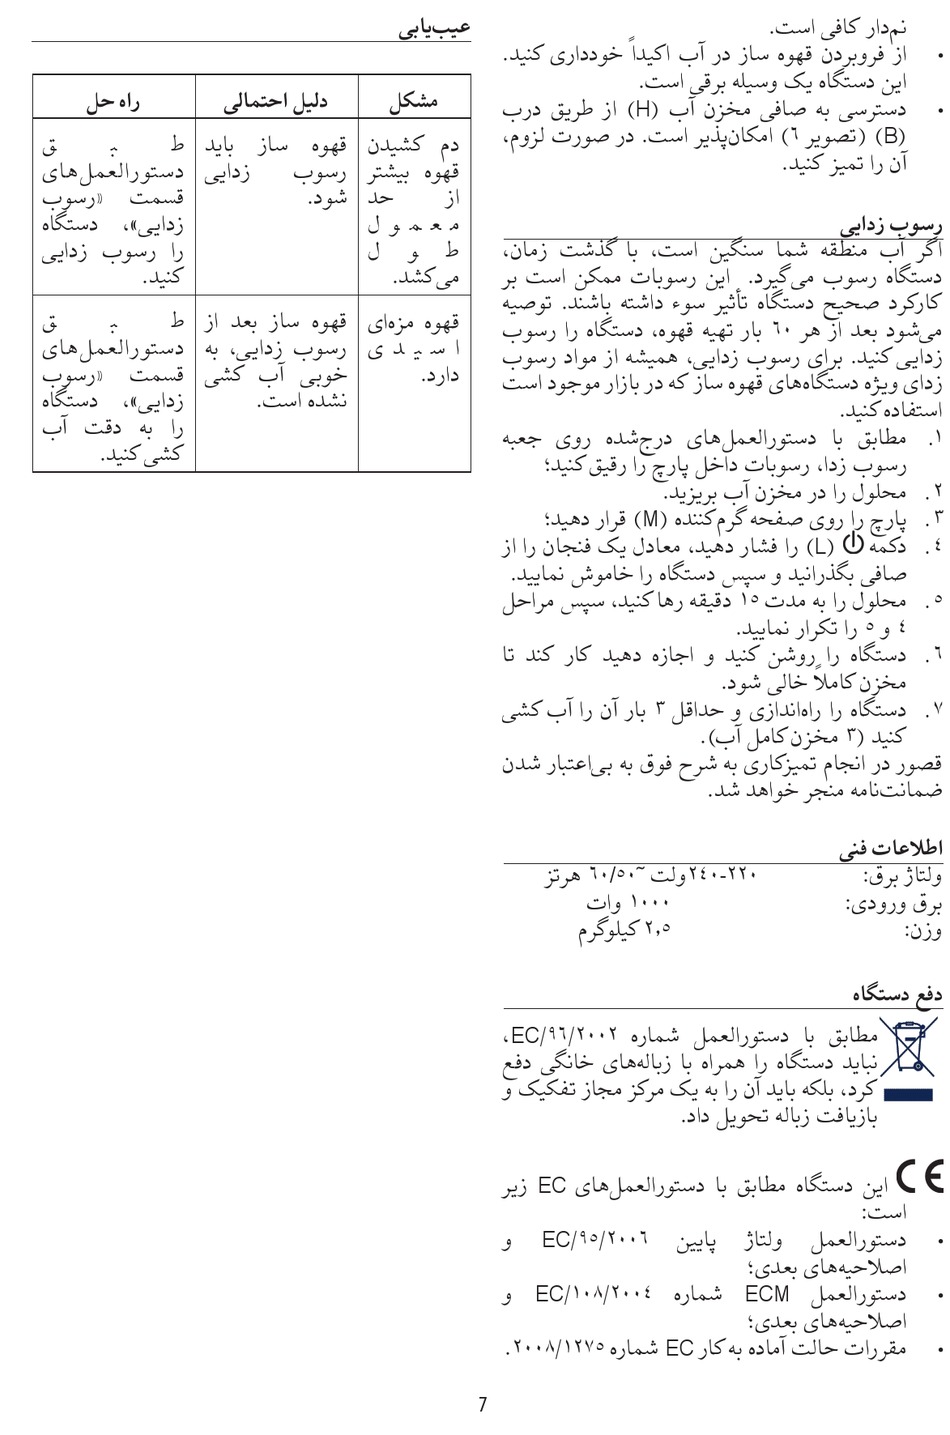 نم‌دار کافی است.
• از فروبردن قهوه ساز در آب اکیداً خودداری کنید.
این دستگاه یک وسیله برقی است.
• دسترسی به صافی مخزن آب (H) از طریق درب
(B) (تصویر ٦) امکان‌پذیر است. در صورت لزوم،
آن را تمیز کنید.
رسوب زدایی
اگر آب منطقه شما سنگین است، با گذشت زمان،
دستگاه رسوب می‌گیرد. این رسوبات ممکن است بر
کارکرد صحیح دستگاه تأثیر سوء داشته باشند. توصیه
می‌شود بعد از هر ٦٠ بار تهیه قهوه، دستگاه را رسوب
زدایی کنید. برای رسوب زدایی، همیشه از مواد رسوب
زدای ویژه دستگاه‌های قهوه ساز که در بازار موجود است
استفاده کنید.
١. مطابق با دستورالعمل‌های درج‌شده روی جعبه
رسوب زدا، رسوبات داخل پارچ را رقیق کنید؛
٢. محلول را در مخزن آب بریزید.
٣. پارچ را روی صفحه گرم‌کننده (M) قرار دهید؛
٤. دکمه ⏻ (L) را فشار دهید، معادل یک فنجان را از
صافی بگذرانید و سپس دستگاه را خاموش نمایید.
٥. محلول را به مدت ١٥ دقیقه رها کنید، سپس مراحل
٤ و ٥ را تکرار نمایید.
٦. دستگاه را روشن کنید و اجازه دهید کار کند تا
مخزن کاملاً خالی شود.
٧. دستگاه را راه‌اندازی و حداقل ٣ بار آن را آب کشی
کنید (٣ مخزن کامل آب).
قصور در انجام تمیزکاری به شرح فوق به بی‌اعتبار شدن
ضمانت‌نامه منجر خواهد شد.
اطلاعات فنی
ولتاژ برق: ٢٢٠-٢٤٠ ولت ~٦٠/٥٠ هرتز
برق ورودی: ١٠٠٠ وات
وزن: ٢,٥ کیلوگرم
دفع دستگاه
مطابق با دستورالعمل شماره EC/٩٦/٢٠٠٢،
نباید دستگاه را همراه با زباله‌های خانگی دفع
کرد، بلکه باید آن را به یک مرکز مجاز تفکیک و
بازیافت زباله تحویل داد.
CE این دستگاه مطابق با دستورالعمل‌های EC زیر
است:
• دستورالعمل ولتاژ پایین EC/٩٥/٢٠٠٦ و
اصلاحیه‌های بعدی؛
• دستورالعمل ECM شماره EC/١٠٨/٢٠٠٤ و
اصلاحیه‌های بعدی؛
• مقررات حالت آماده به کار EC شماره ٢٠٠٨/١٢٧٥.
عیب‌یابی
مشکل دلیل احتمالی راه حل
دم کشیدن
قهوه بیشتر
از حد
معمول
طول
می‌کشد.
قهوه ساز باید
رسوب زدایی
شود.
طبق
دستورالعمل‌های
قسمت «رسوب
زدایی»، دستگاه
را رسوب زدایی
کنید.
قهوه مزه‌ای
اسیدی
دارد.
قهوه ساز بعد از
رسوب زدایی، به
خوبی آب کشی
نشده است.
طبق
دستورالعمل‌های
قسمت «رسوب
زدایی»، دستگاه
را به دقت آب
کشی کنید.
7